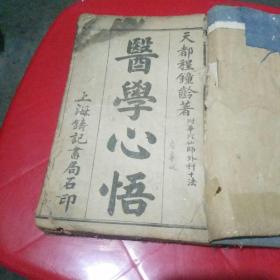 天都程鐘齡著
附華陀仙師外科十法
醫學心悟
上海鑄記書局石印